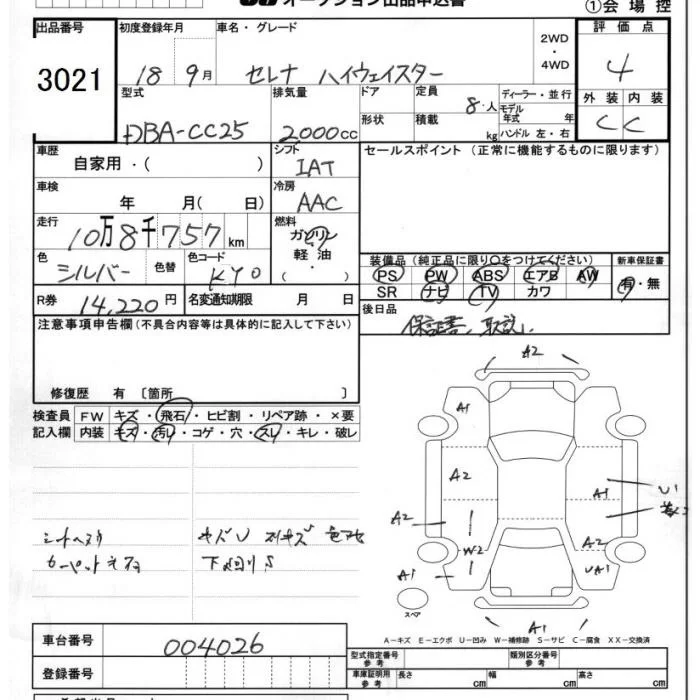 オークション出品申込書
①会場控
出品番号 初度登録年月 車名・グレード 評価点
3021 18 9月 セレナ ハイウェイスター 2WD ・ 4WD 4
型式 排気量 ドア 定員 8人 ディーラー・並行 外装 内装
DBA-CC25 2000cc 形状 積載 kg モデル年式 年 ハンドル 左・右 C C
車歴 シフト セールスポイント (正常に機能するものに限ります)
自家用・( ) IAT
車検 冷房
年 月( 日) AAC
走行 燃料
10万8千757km ガソリン
色 色替 色コード 軽油 装備品 (純正品に限り○をつけてください) 新車保証書
シルバー KY0 ( ・ ) PS PW ABS エアB AW 有・無
SR ナビ TV カワ
R券 14,220円 名変通知期限 月 日 後日品
保証書、取説、
注意事項申告欄(不具合内容等は具体的に記入して下さい)
修復歴 有 〔箇所 〕
検査員 FW キズ・飛石・ヒビ割・リペア跡・×要
記入欄 内装 キズ・汚レ・コゲ・穴・スレ・キレ・破レ
A2
A1
A2 A1
A2
W2 A2
A1 UA1
スペア
A1
下回りS
A-キズ E-エクボ U-凹み W-補修跡 S-サビ C-腐食 XX-交換済
車台番号 004026
型式指定番号 参考 類別区分番号 参考
登録番号 車庫証明用 参考 長さ cm 幅 cm 高さ cm